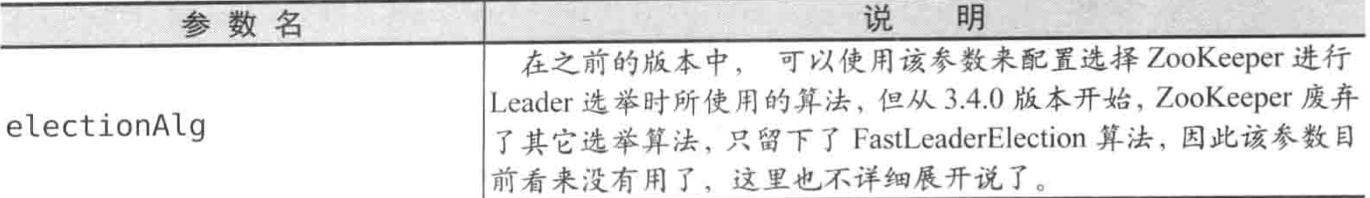 参 数 名 说 明
在之前的版本中， 可以使用该参数来配置选择 ZooKeeper 进行
Leader 选举时所使用的算法，但从 3.4.0 版本开始，ZooKeeper 废弃
electionAlg
了其它选举算法，只留下了 FastLeaderElection 算法，因此该参数目
前看来没有用了，这里也不详细展开说了。